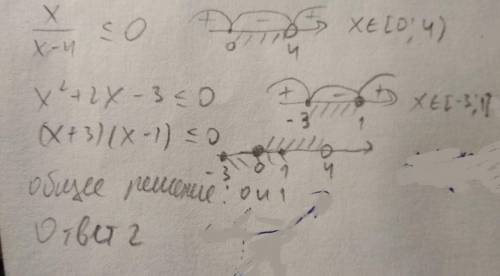 x/(x-4) ≤ 0   + - +   0   4   x∈[0; 4)
x²+2x-3 ≤ 0   + - +   -3   1   x∈[-3; 1]
(x+3)(x-1) ≤ 0
-3   0   1   4
общее решение: 0 и 1
Ответ 2